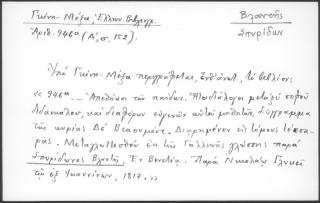 Γκίνη - Μέξα, Ἑλλην. Βιβλιγρ.
Βλαντής
Ἀριθ. 948α (Α', σ. 152).
Σπυρίδων
Ὑπὸ Γκίνη - Μέξα περιγράφεται, τὸ βιβλίον:
«948α. — Ἀποθήκη τῶν παίδων. Ἢ διάλογοι μεταξὺ σοφοῦ
διδασκάλου, καὶ διαφόρων εὐγενῶν αὐτοῦ μαθητῶν, Σύγγραμμα
τῆς κυρίας Δὲ Βεαουμόντ. Διῃρημένον εἰς τόμους τέσσα-
ρας. Μεταγλωττισθὲν ἐκ τῆς Γαλλικῆς γλώσσης παρὰ
Σπυρίδωνος Βλαντῆ. Ἐν Βενετίᾳ. Παρὰ Νικολάῳ Γλυκεῖ
τῷ ἐξ Ἰωαννίνων, 1817.»